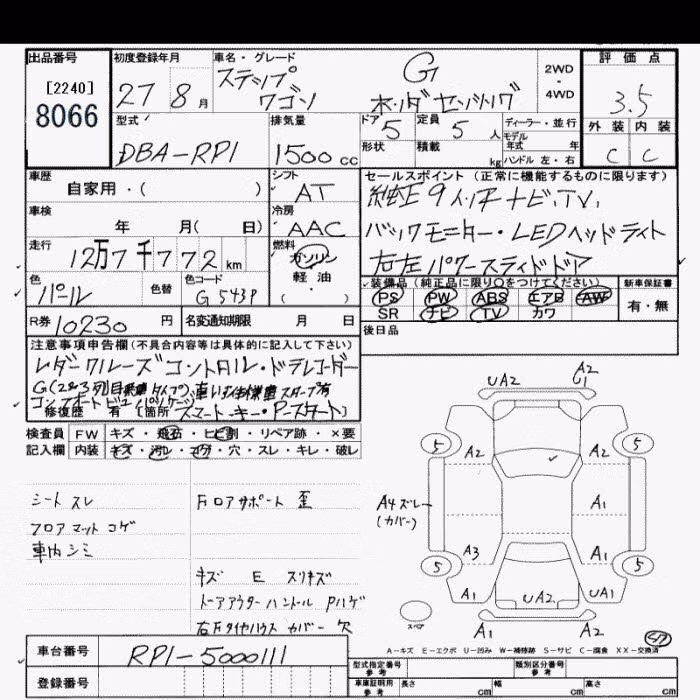 出品番号
[2240]
8066
初度登録年月
27 8 月
車名・グレード
ステップ
ワゴン
G
ホンダセンシング
2WD
・
4WD
評価点
3.5
外装 内装
C C
型式
DBA-RP1
排気量
1500 cc
ドア
5
定員
5 人
ディーラー・並行
モデル
年式 年
形状
積載
kg
ハンドル 左・右
車歴
自家用・( )
シフト
AT
セールスポイント (正常に機能するものに限ります)
純正9インチナビ.TV.
バックモニター・LEDヘッドライト
右左パワースライドドア
車検
年 月( 日)
冷房
AAC
走行
12万7千772 km
燃料
ガソリン
軽・油
・( )
色
パール
色替
色コード
G543P
装備品 (純正品に限り○をつけてください)
PS PW ABS エアB AW
SR ナビ TV カワ
新車保証書
有・無
R券 10230 円
名変通知期限 月 日
後日品
注意事項申告欄 (不具合内容等は具体的に記入して下さい)
レダークルーズコントロル・ドラレコーダー
修復歴 有 [箇所 スマートキー・Pスタート]
検査員 FW キズ・飛石・ヒビ割・リペア跡・×要
記入欄 内装 キズ・汚レ・コゲ・穴・スレ・キレ・破レ
シートスレ
フロアマットコゲ
車内シミ
Fロアサポート 歪
キズ E スリキズ
トーアアウターハンドル Pハゲ
右Fタイヤハウスカバー欠
UA2
A2
G1
5
5
A2
A2
A4ズレー
(カバー)
A1
A3
A1
5
5
A1
UA2
UA1
スペア
A1
A2
A-キズ E-エクボ U-凹み W-補修跡 S-サビ C-腐食 XX-交換済
車台番号 RP1-5000111
登録番号
型式指定番号
参考
類別区分番号
参考
車庫証明用
参考
長さ cm
幅 cm
高さ cm